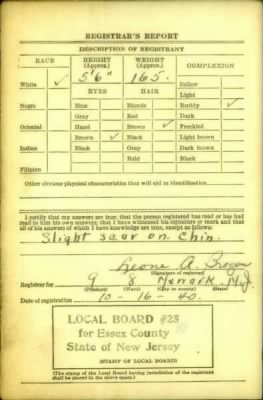 REGISTRAR'S REPORT
DESCRIPTION OF REGISTRANT
RACE HEIGHT (Approx.) WEIGHT (Approx.) COMPLEXION
White ✓ 5'6" 165. Sallow
Light
EYES HAIR Ruddy ✓
Negro Blue Blonde Dark
Gray Red Freckled
Oriental Hazel Brown ✓ Light brown
Brown ✓ Black Dark brown
Indian Black Gray Black
Bald
Filipino
Other obvious physical characteristics that will aid in identification
I certify that my answers are true; that the person registered has read or has had
read to him his own answers; that I have witnessed his signature or mark and that
all of his answers of which I have knowledge are true, except as follows:
Slight scar on Chin.
Leone A.
(Signature of registrar)
Registrar for 9 8 Newark N.J.
(Precinct) (Ward) (City or county) (State)
Date of registration 10-16-40.
LOCAL BOARD #25
for Essex County
State of New Jersey
(STAMP OF LOCAL BOARD)
(The stamp of the Local Board having jurisdiction of the registrant
shall be placed in the above space.)